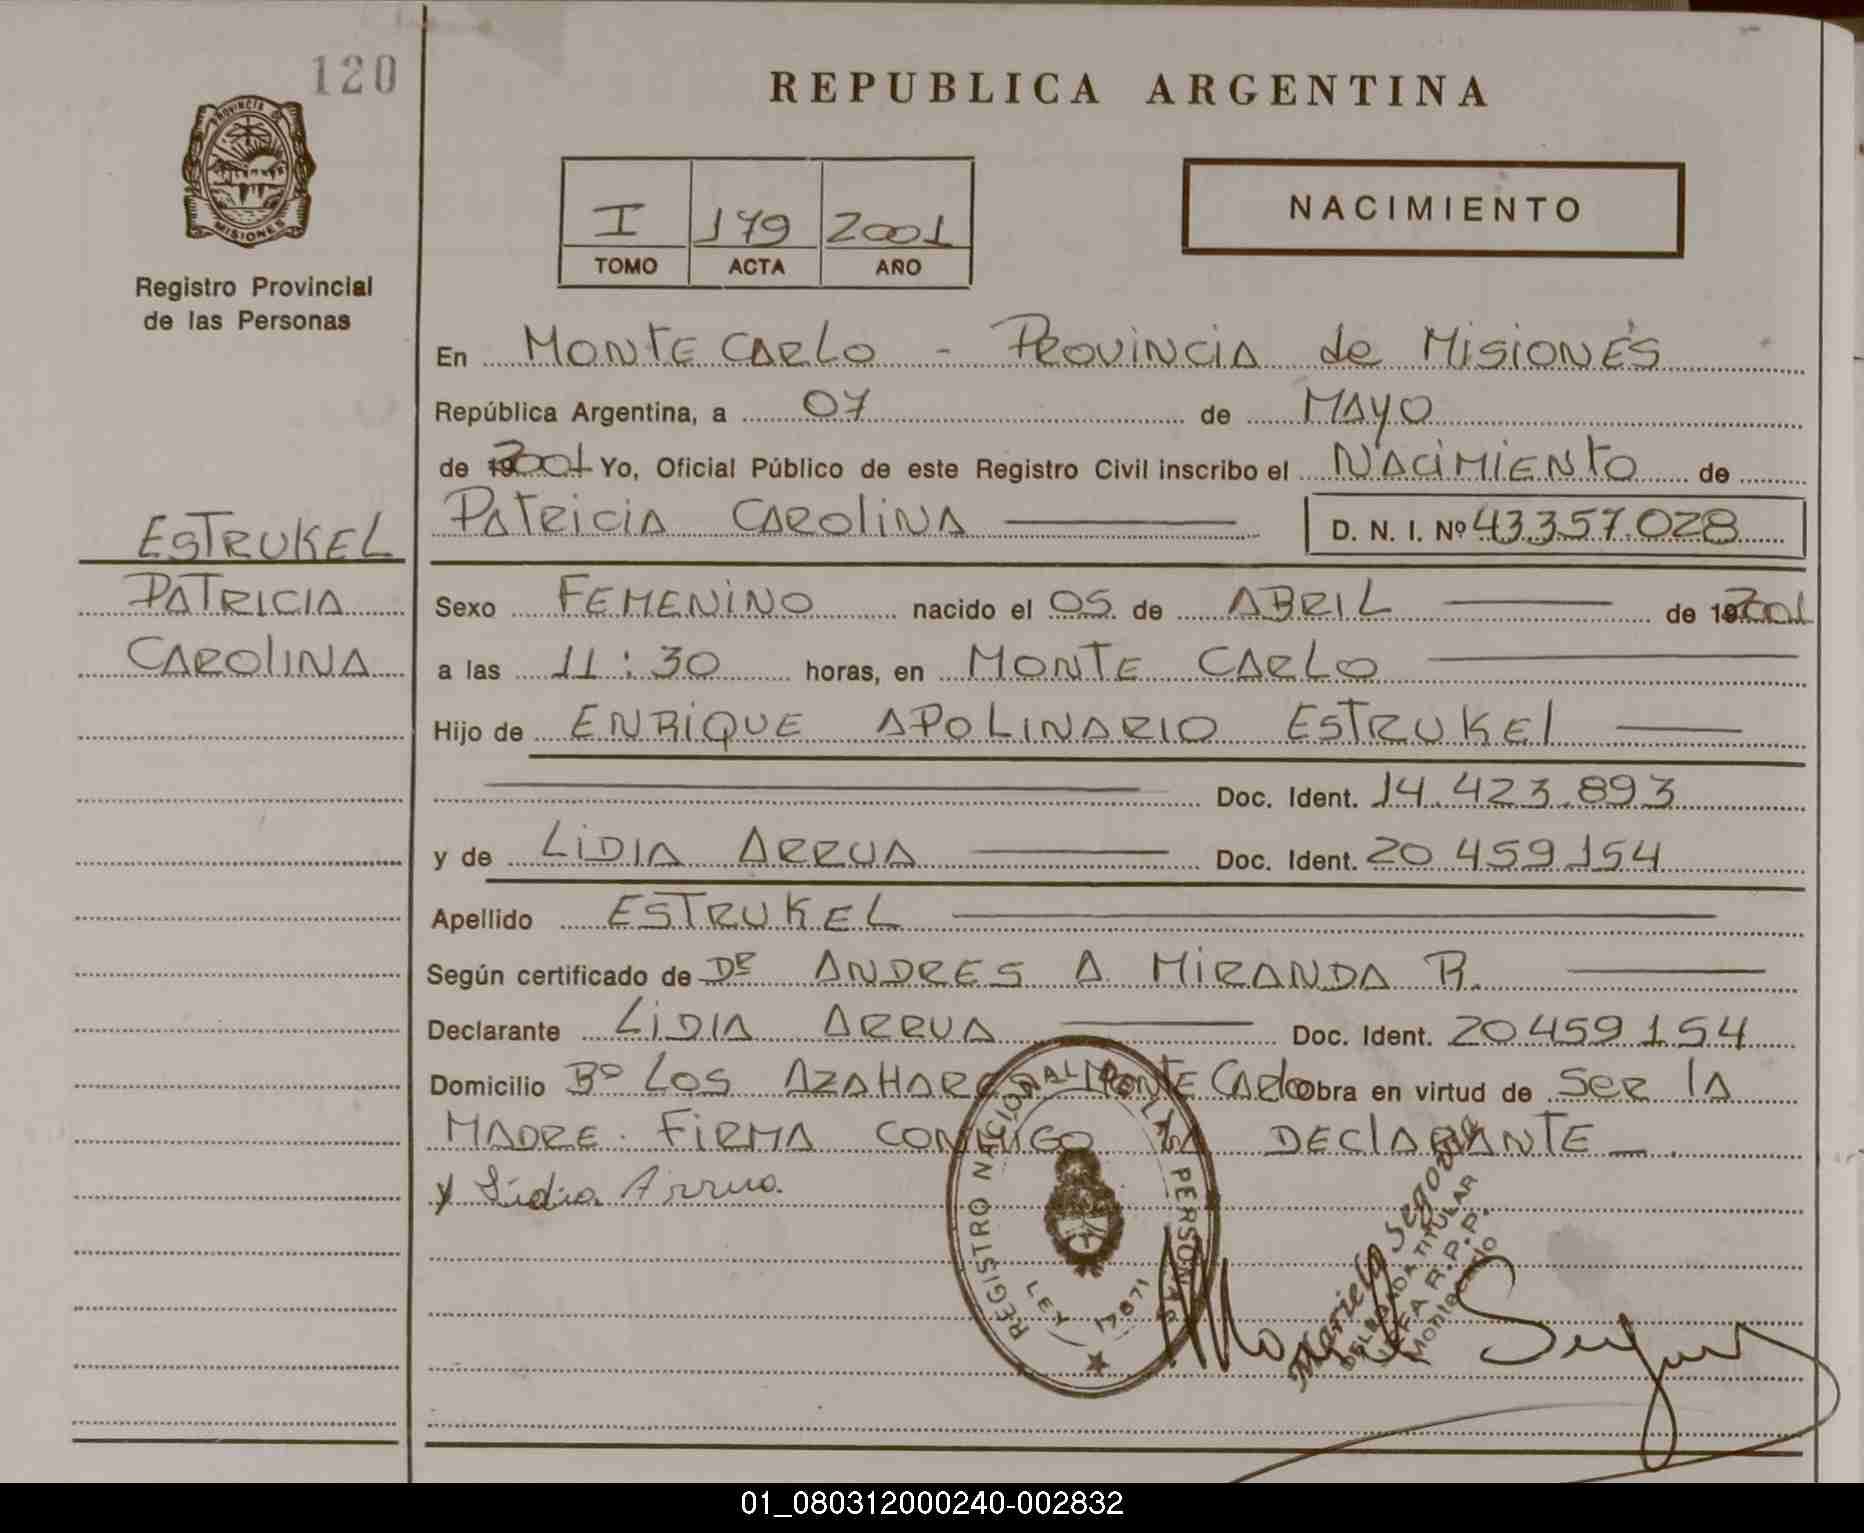 120
PROVINCIA DE
MISIONES
Registro Provincial
de las Personas
ESTRUKEL
PATRICIA
CAROLINA
REPUBLICA ARGENTINA
I 179 2001
TOMO ACTA AÑO
NACIMIENTO
En MONTE CARLO - PROVINCIA de MISIONES
República Argentina, a 07 de MAYO
de 2001 Yo, Oficial Público de este Registro Civil inscribo el NACIMIENTO de
PATRICIA CAROLINA D. N. I. Nº 43.357.028
Sexo FEMENINO nacido el 05 de ABRIL de 2001
a las 11:30 horas, en MONTE CARLO
Hijo de ENRIQUE APOLINARIO ESTRUKEL
Doc. Ident. 14.423.893
y de LIDIA ARRUA Doc. Ident. 20 459 154
Apellido ESTRUKEL
Según certificado de Dr ANDRES A. MIRANDA R.
Declarante LIDIA ARRUA Doc. Ident. 20 459 154
Domicilio Bº LOS AZAHARES MONTE CARLO obra en virtud de SER LA
MADRE. FIRMA CONMIGO LA DECLARANTE
y Lidia Arrua
REGISTRO NACIONAL DE LAS PERSONAS
LEY 17671
Mariela Segovia
DELEGADA TITULAR
JEFA R.P.P.
Montecarlo
01_080312000240-002832